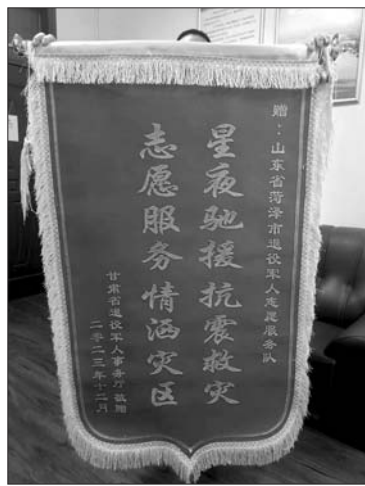 赠：山东省菏泽市退役军人志愿服务队
星夜驰援抗震救灾
志愿服务情洒灾区
甘肃省退役军人事务厅敬赠
二零二三年十二月